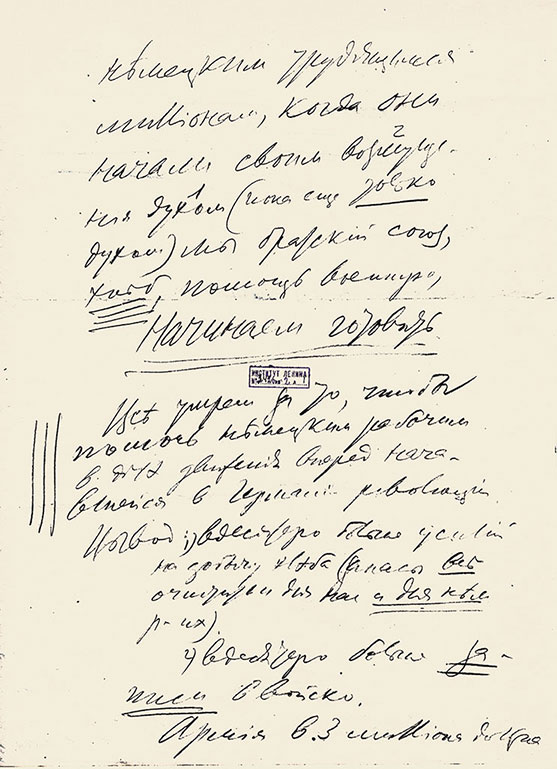 нѣмецким трудящимся
миллiонам, когда они
начали своим возмуще-
ния духом (пока еще только
духом) мы братскiй союз,
хлѣб, помощь военную,
начинаем готовить.
ИНСТИТУТ ЛЕНИНА
Всѣ умрем за то, чтобы
помочь нѣмецким рабочим
в дѣлѣ движенiя вперед нача-
вшейся в Германiи революцiи.
Вывод: 1) вдесятеро больше усилiй
на добычу хлѣба (запасы всѣ
очистить для нас и для нѣм.
р-их).
2) вдесятеро больше за-
писи в войско.
Армiя в 3 миллiона должна